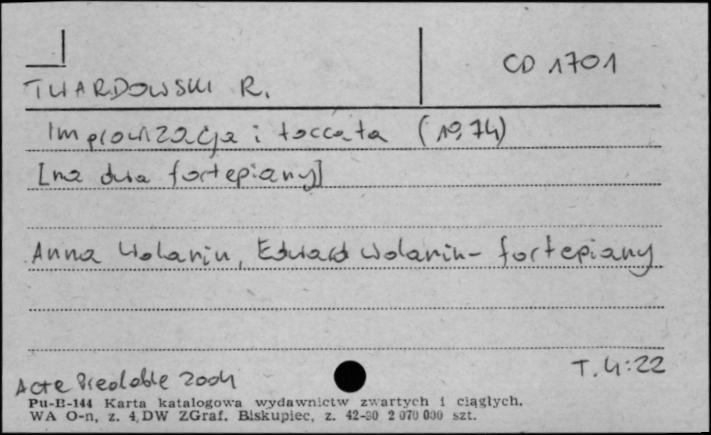 CD 1701
TWARDOWSKI R.
Improwizacja i toccata (1974)
[na dwa fortepiany]
Anna Wolanin, Edward Wolanin - fortepiany
T. 4:22
Acte Prealable 2004
Pu-B-144 Karta katalogowa wydawnictw zwartych i ciągłych.
WA O-n, z. 4, DW ZGraf. Biskupiec, z. 42-80 2 070 000 szt.